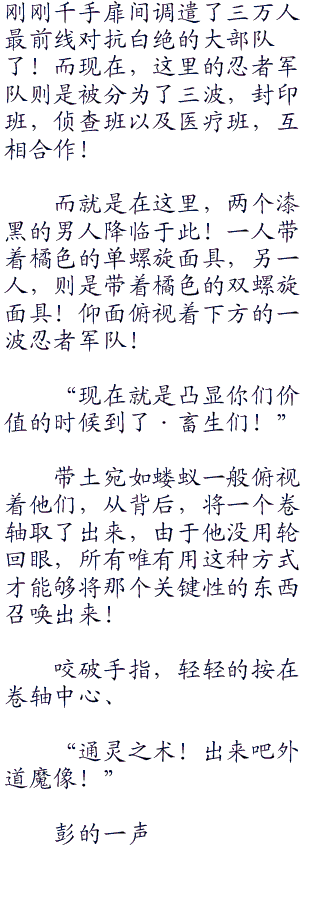 刚刚千手扉间调遣了三万人
最前线对抗白绝的大部队
了！而现在，这里的忍者军
队则是被分为了三波，封印
班，侦查班以及医疗班，互
相合作！
而就是在这里，两个漆
黑的男人降临于此！一人带
着橘色的单螺旋面具，另一
人，则是带着橘色的双螺旋
面具！仰面俯视着下方的一
波忍者军队！
“现在就是凸显你们价
值的时候到了·畜生们！”
带土宛如蝼蚁一般俯视
着他们，从背后，将一个卷
轴取了出来，由于他没用轮
回眼，所有唯有用这种方式
才能够将那个关键性的东西
召唤出来！
咬破手指，轻轻的按在
卷轴中心、
“通灵之术！出来吧外
道魔像！”
彭的一声